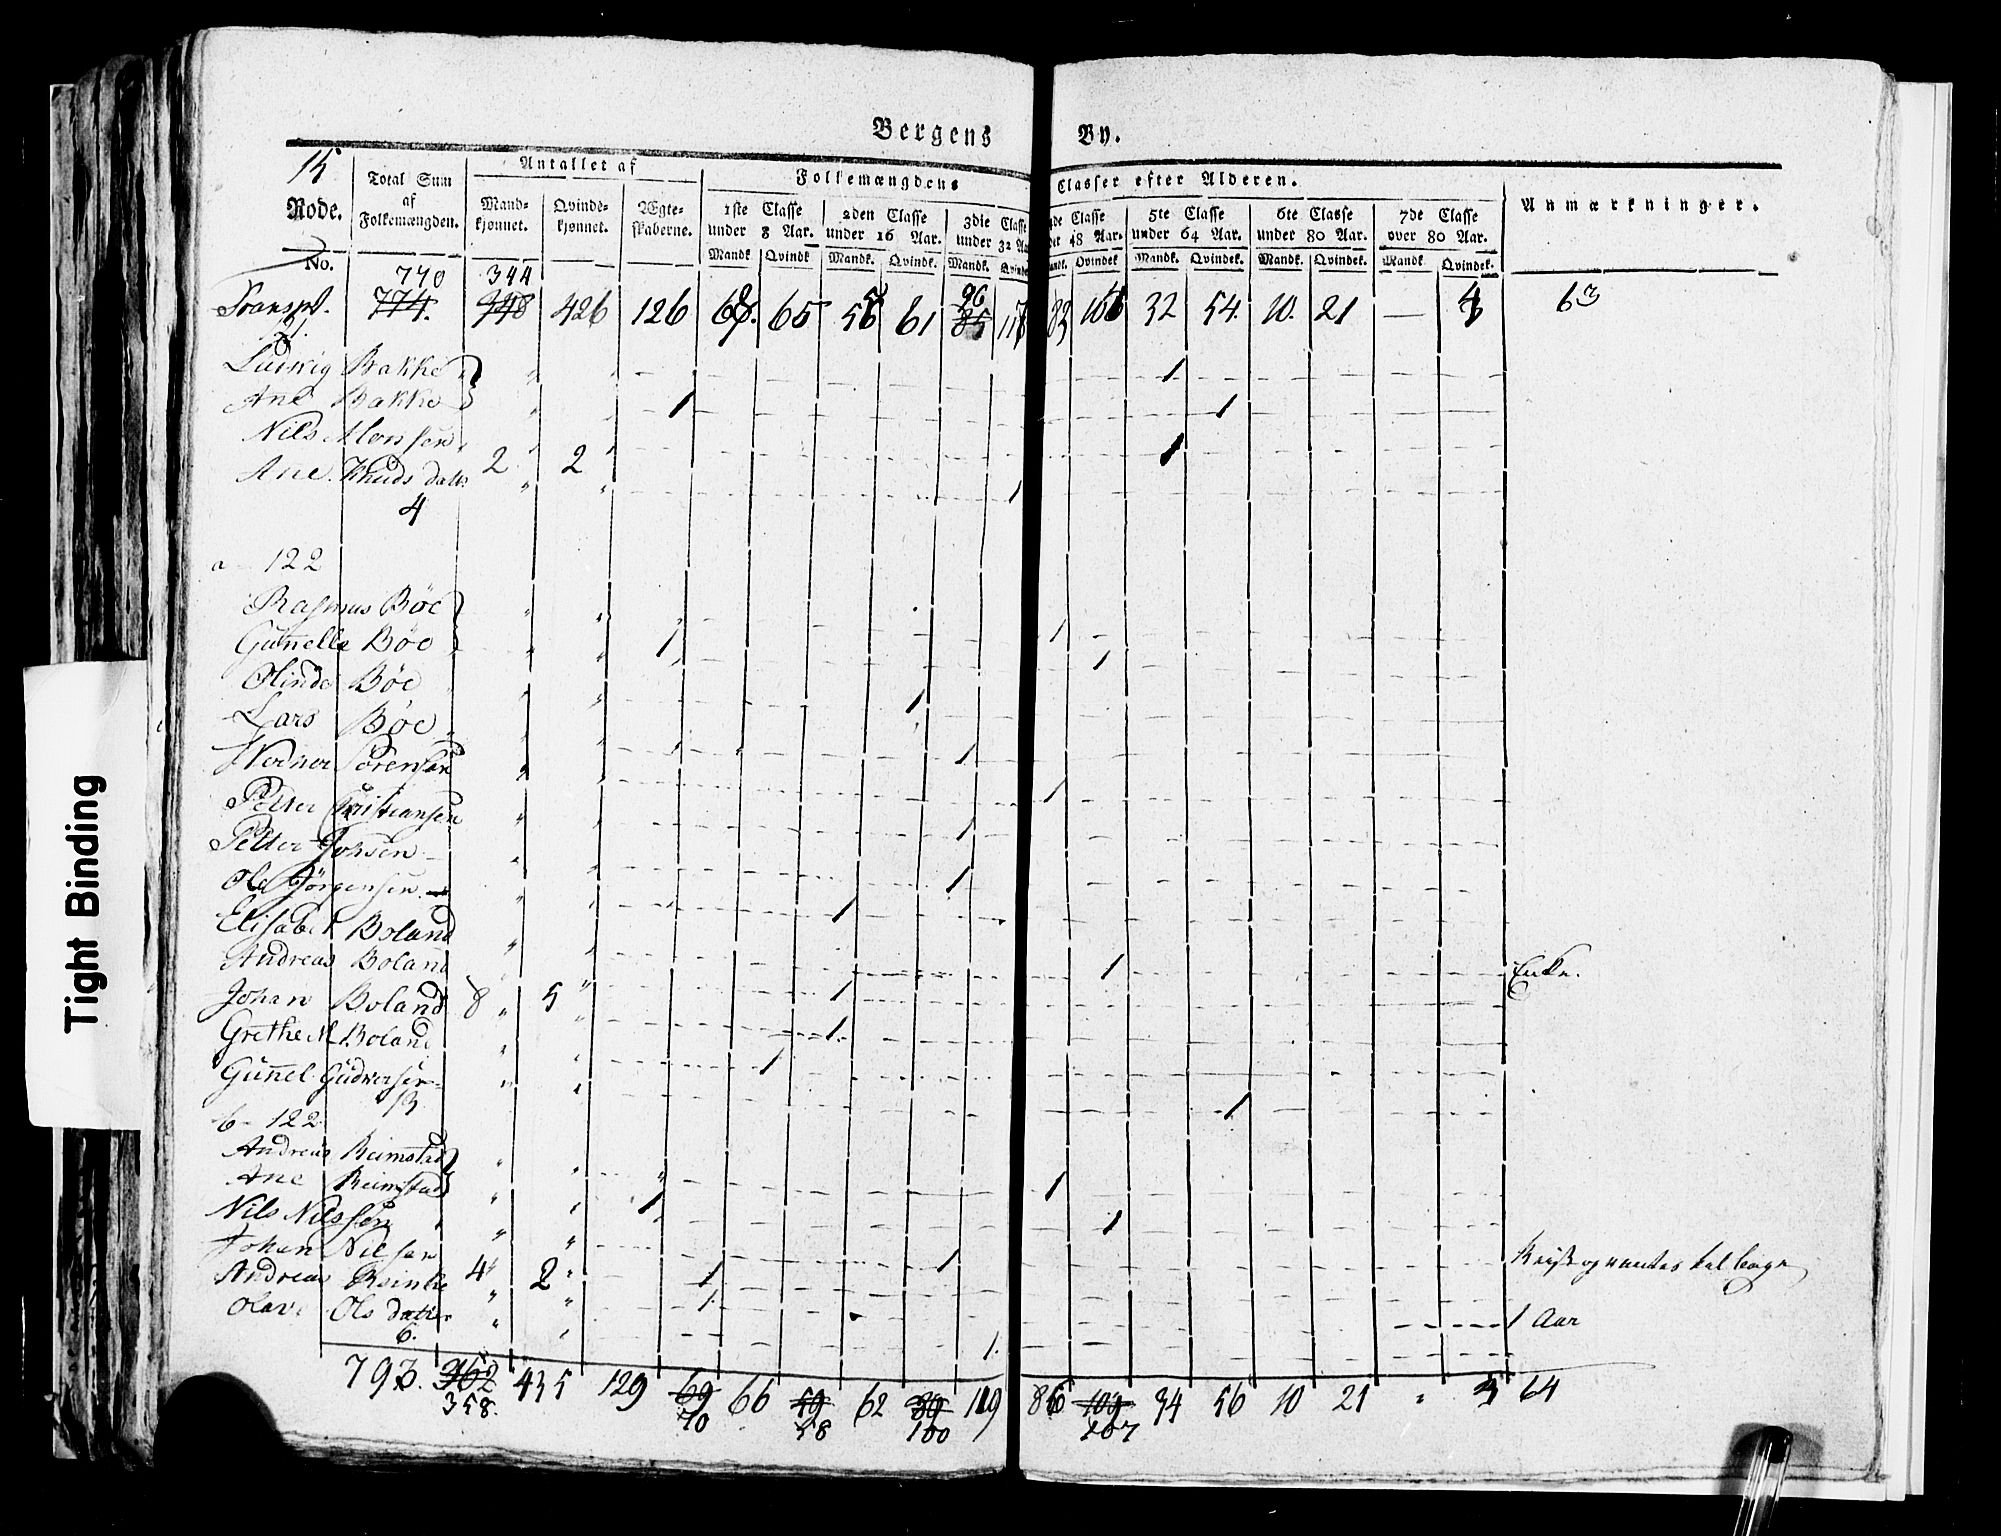 Bergens By.
15 Rode.
Total Sum af Folkemængden.
Antallet af
Mandkjønnet. Qvindekjønnet. Ægteskaberne.
Folkemængdens Classer efter Alderen.
1ste Classe under 8 Aar. 2den Classe under 16 Aar. 3die Classe under 32 Aar 48 Aar. 5te Classe under 64 Aar. 6te Classe under 80 Aar. 7de Classe over 80 Aar.
Anmærkninger.
Mandk. Qvindk. Mandk. Qvindek. Mandk. Qvindek Mandk. Qvindek Mandk. Qvindek. Mandk. Qvindek. Mandk Qvindek.
No.
770 344
Transpt. 774. 348 426 126 65 61 32 54. 10. 21 — 63
Ludvig Bakke 1
Ane Bakke 1 1
Nils Monsen 1
Ane Knuds datr 2 2 1
4
a - 122
Rasmus Böe 1
Gunnelle Böe 1 1
Olinde Böe 1
Lars Böe 1
Werner Sörensen 1
Petter Cristiansen 1
Petter Johsen 1
Ole Görgensen 1
Elisabet Boland 1 Enke.
Andreas Boland 1
Johan Boland 8 5 1
Grethe M. Boland 1
Gunnel 1
13
b - 122
Andreas Reimstad 1
Ane Reimstad 1 1
Nils Nilssen 1
Johan Nilsen 1
Andreas 4 2 1 1 Aar
Ols datter 1.
6.
793. 362 435 129 69 66 59 62 119 86 109 34 56 10 21 64
358. 70 58 100 107
Tight Binding